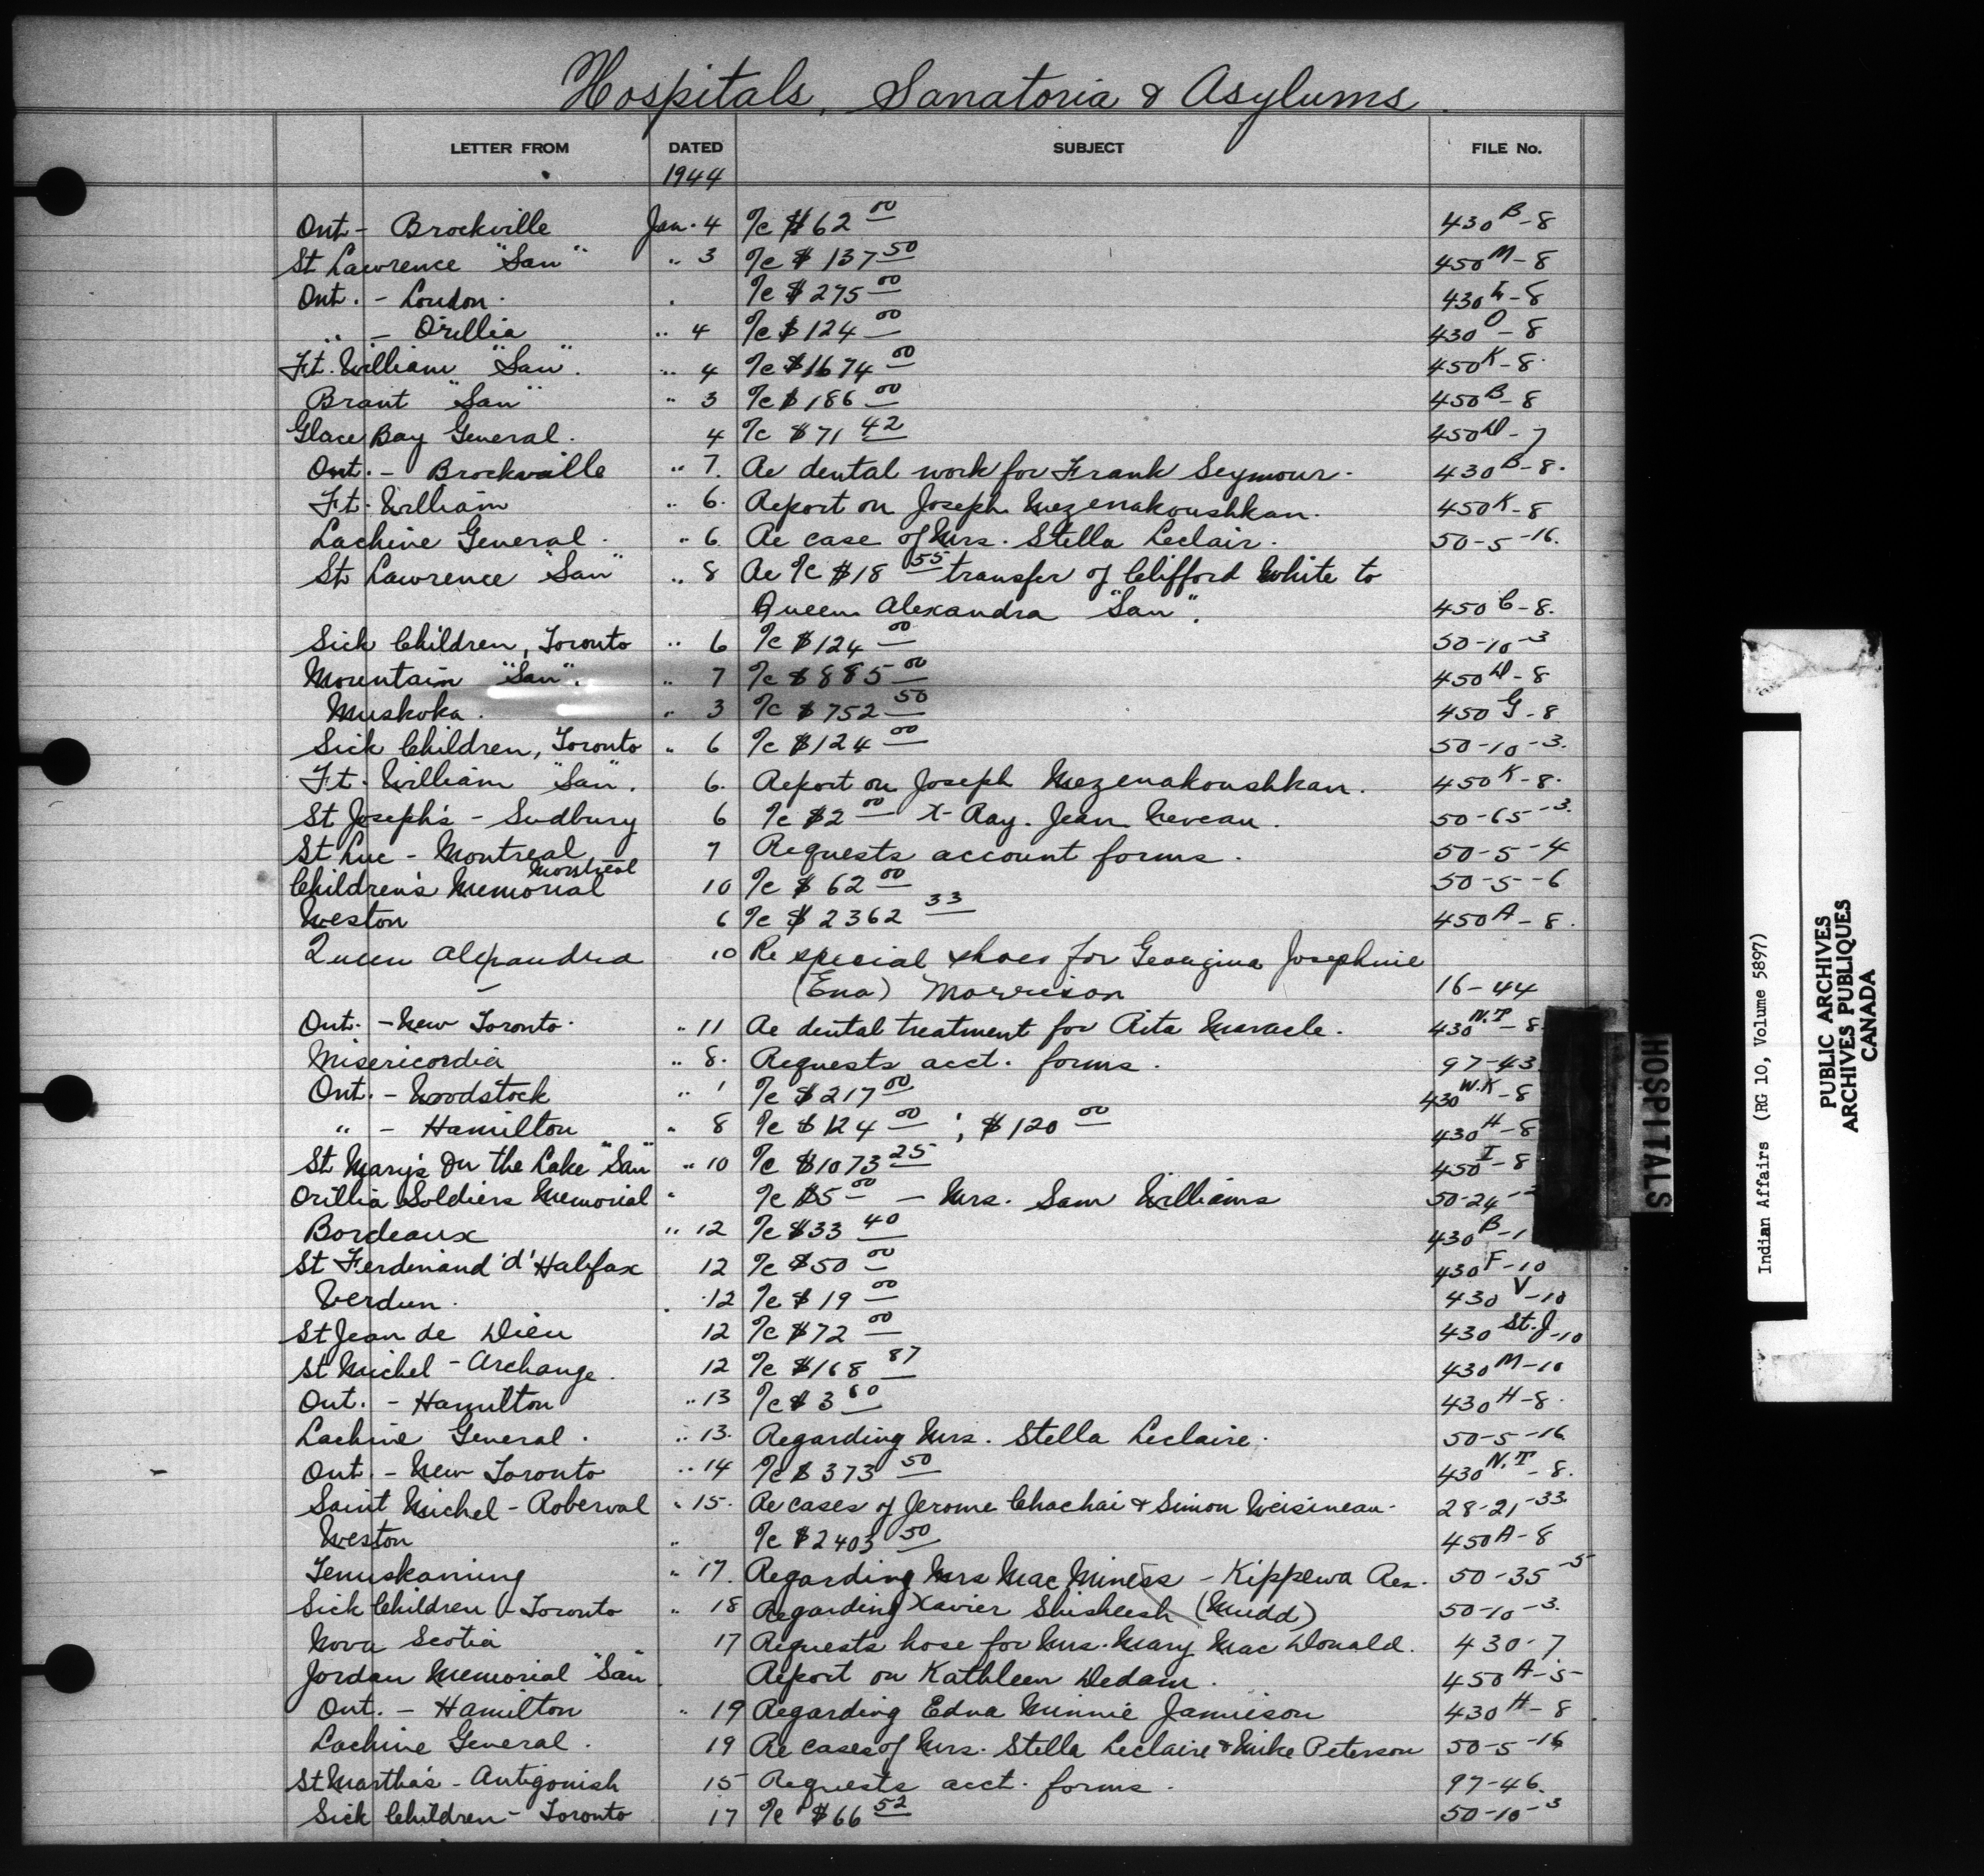 Hospitals, Sanatoria & Asylums.
LETTER FROM DATED SUBJECT FILE No.
1944
Ont - Brockville Jan. 4 %c $62 00 430 B-8
St Lawrence "San" .. 3 %c $137 50 450 M-8
Ont. - London. %c $275 00 430 L-8
.. - Orillia .. 4 %c $124 00 430 O-8
Ft. William "San". .. 4 %c $1674 00 450 K-8.
Brant "San" .. 3 %c $186 00 450 B-8
Glace Bay General. 4 %c $71 42 450 D-7
Ont. - Brockville .. 7. Re dental work for Frank Seymour. 430 B-8.
Ft. William .. 6. Report on Joseph Mezenakoushkan. 450 K-8
Lachine General. .. 6 Re case of Mrs. Stella Leclair. 50-5-16.
St Lawrence "San" .. 8 Re %c $18 55 transfer of Clifford White to
Queen Alexandra "San". 450 C-8.
Sick Children, Toronto .. 6 %c $124 00 50-10-3
Mountain "San". .. 7 %c $885 00 450 D-8
Muskoka. .. 3 %c $752 50 450 G-8
Sick Children, Toronto .. 6 %c $124 00 50-10-3.
Ft. William "San". 6. Report on Joseph Mezenakoushkan. 450 K-8.
St Joseph's - Sudbury 6 %c $2 00 X-Ray. Jean Neveau. 50-65-3.
St Luc - Montreal 7 Requests account forms. 50-5-4
Children's Memorial Montreal 10 %c $62 00 50-5-6
Weston 6 %c $2362 33 450 A-8.
Queen Alexandra 10 Re special shoes for Georgina Josephine
(Ena) Morrison 16-44
Ont. - New Toronto. .. 11 Re dental treatment for Rita Maracle. 430 N.T-8.
Misericordia .. 8. Requests acct. forms. 97-43
Ont. - Woodstock .. 1 %c $217 00 430 W.K-8
" - Hamilton .. 8 %c $124 00; $120 00 430 H-8
St Mary's On the Lake "San" .. 10 %c $1073 25 450 I-8
Orillia Soldiers Memorial " %c $5 00 - Mrs. Sam Williams 50-24-2
Bordeaux .. 12 %c $33 40 430 B-1
St Ferdinand 'd' Halifax 12 %c $50 00 430 F-10
Verdun. .12 %c $19 00 430 V-10
St Jean de Dieu 12 %c $72 00 430 St.J-10
St Michel - Archange. 12 %c $168 87 430 M-10
Ont. - Hamilton .. 13 %c $3 60 430 H-8.
Lachine General. .. 13. Regarding Mrs. Stella Leclaire. 50-5-16.
Ont. - New Toronto .. 14 %c $373 50 430 N.T-8.
Saint Michel - Roberval .. 15. Re cases of Jerome Chachai & Simon Weisineau. 28-21-33.
Weston .. %c $2403 50 450 A-8
Temiskaming .. 17. Regarding Mrs Mac Miness - Kippewa Res. 50-35-5
Sick Children - Toronto .. 18 Regarding Xavier Shisheesh (Mudd) 50-10-3.
Nova Scotia 17 Requests hose for Mrs. Mary Mac Donald. 430-7
Jordan Memorial "San". Report on Kathleen Dedam. 450 A-5
Ont. - Hamilton .. 19 Regarding Edna Minnie Jamieson 430 H-8
Lachine General. 19 Re cases of Mrs. Stella Leclaire & Mike Peterson 50-5-16
St Martha's - Antigonish 15 Requests acct. forms. 97-46.
Sick Children - Toronto 17 %c $66 52 50-10-3
HOSPITALS
Indian Affairs (RG 10, Volume 5897)
PUBLIC ARCHIVES
ARCHIVES PUBLIQUES
CANADA